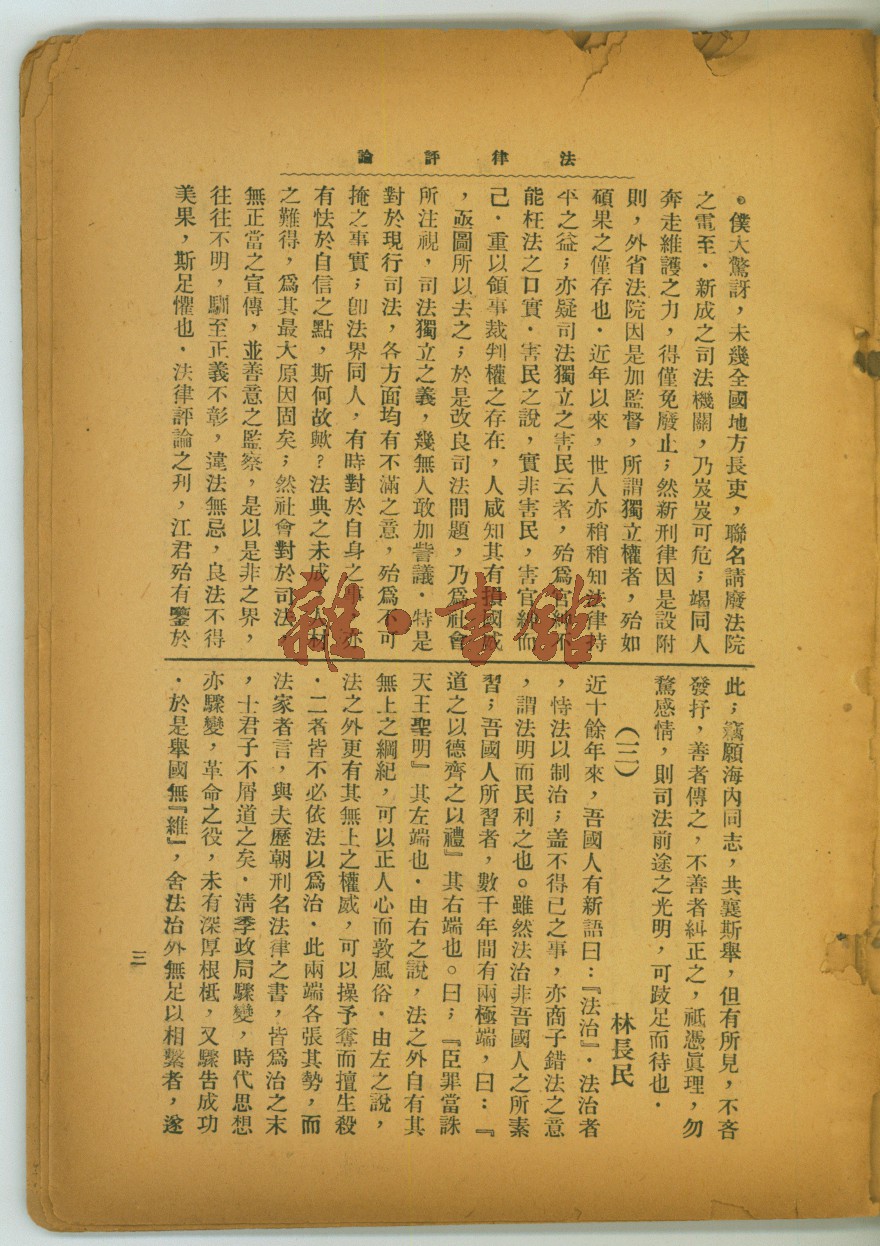 法律評論
。僕大驚訝，未幾全國地方長吏，聯名請廢法院
之電至．新成之司法機關，乃岌岌可危；竭同人
奔走維護之力，得僅免廢止；然新刑律因是設附
則，外省法院因是加監督，所謂獨立權者，殆如
碩果之僅存也．近年以來，世人亦稍稍知法律持
平之益；亦疑司法獨立之害民云者，殆爲官紳不
能枉法之口實．害民之說，實非害民，害官紳而
己．重以領事裁判權之存在，人咸知其有損國威
，亟圖所以去之；於是改良司法問題，乃爲社會
所注視，司法獨立之義，幾無人敢加訾議．特是
對於現行司法，各方面均有不滿之意，殆爲不可
掩之事實；卽法界同人，有時對於自身之事，亦
有怯於自信之點，斯何故歟？法典之未成，人材
之難得，爲其最大原因固矣；然社會對於司法，
無正當之宣傳，並善意之監察，是以是非之界，
往往不明，馴至正義不彰，違法無忌，良法不得
美果，斯足懼也．法律評論之刊，江君殆有鑒於
此；竊願海內同志，共襄斯舉，但有所見，不吝
發抒，善者傳之，不善者糾正之，祇憑眞理，勿
騖感情，則司法前途之光明，可跂足而待也．
（二）
林長民
近十餘年來，吾國人有新語曰：『法治』．法治者
，恃法以制治；盖不得已之事，亦商子錯法之意
，謂法明而民利之也。雖然法治非吾國人之所素
習；吾國人所習者，數千年間有兩極端，曰：『
道之以德齊之以禮』其右端也。曰；『臣罪當誅
天王聖明』其左端也．由右之說，法之外自有其
無上之綱紀，可以正人心而敦風俗．由左之說，
法之外更有其無上之權威，可以操予奪而擅生殺
．二者皆不必依法以爲治．此兩端各張其勢，而
法家者言，與夫歷朝刑名法律之書，皆爲治之末
，士君子不屑道之矣．淸季政局驟變，時代思想
亦驟變，革命之役，未有深厚根柢，又驟告成功
．於是舉國無『維』，舍法治外無足以相繫者，遂
三
雜·書館